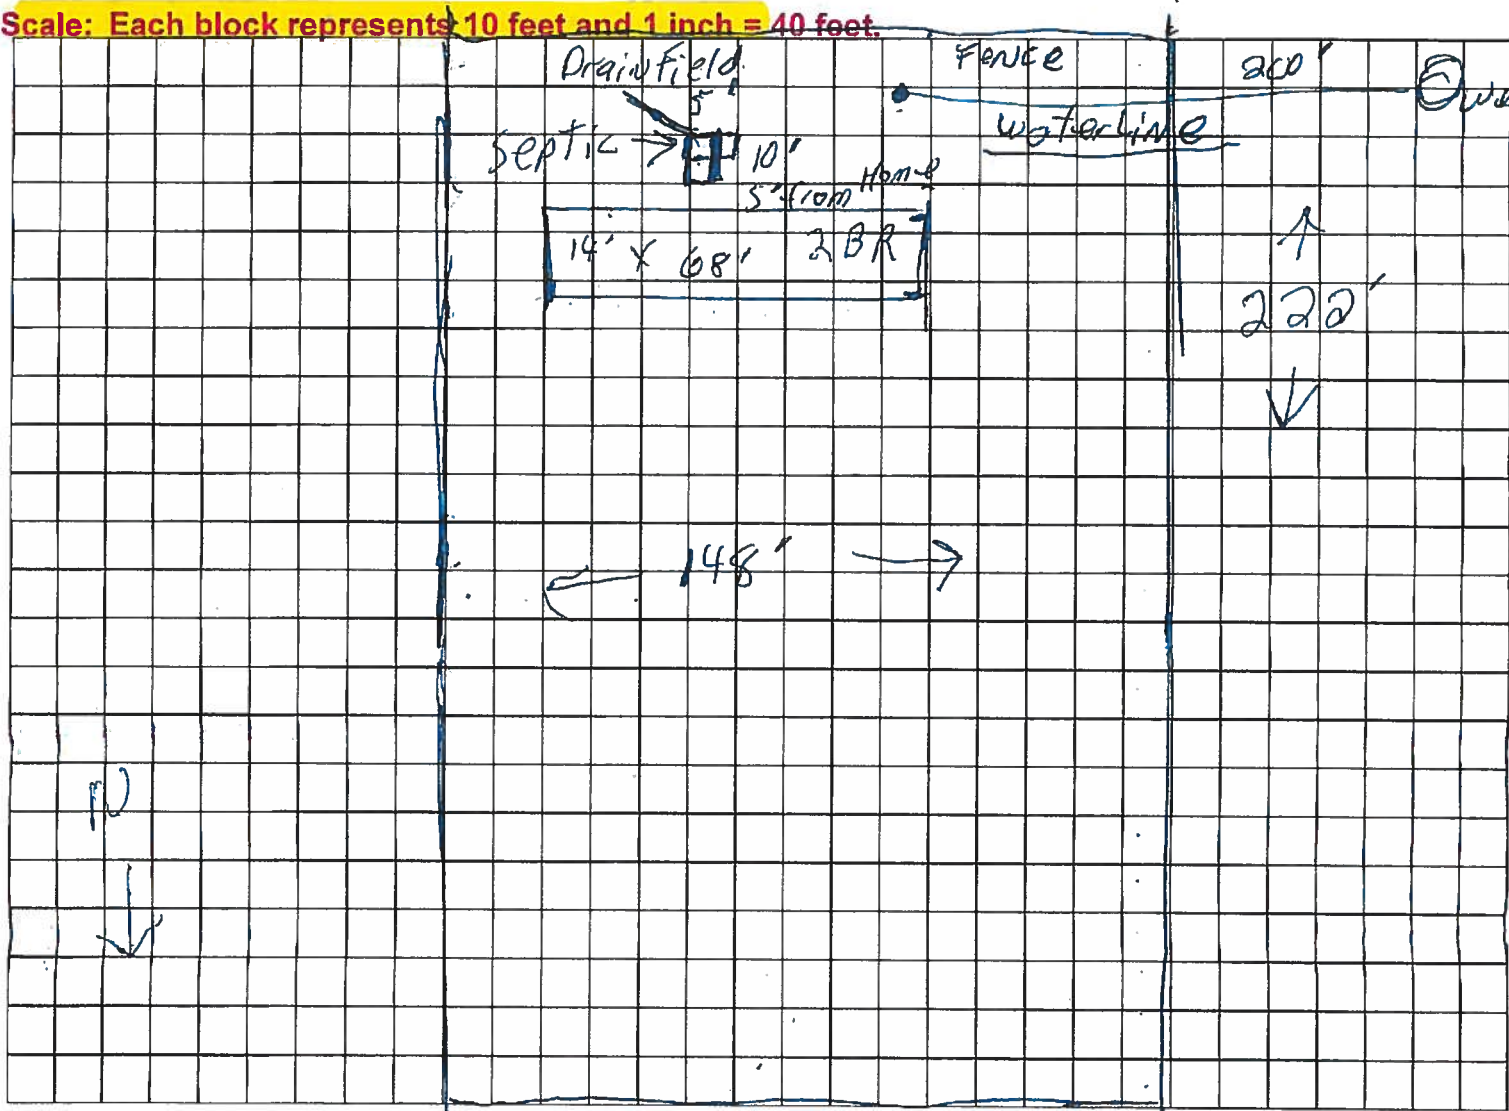 Scale: Each block represents 10 feet and 1 inch = 40 feet.
Drainfield
5'
Fence
200'
Septic
10'
waterline
5' from Home
14' x 68' 2BR
222'
148'
N